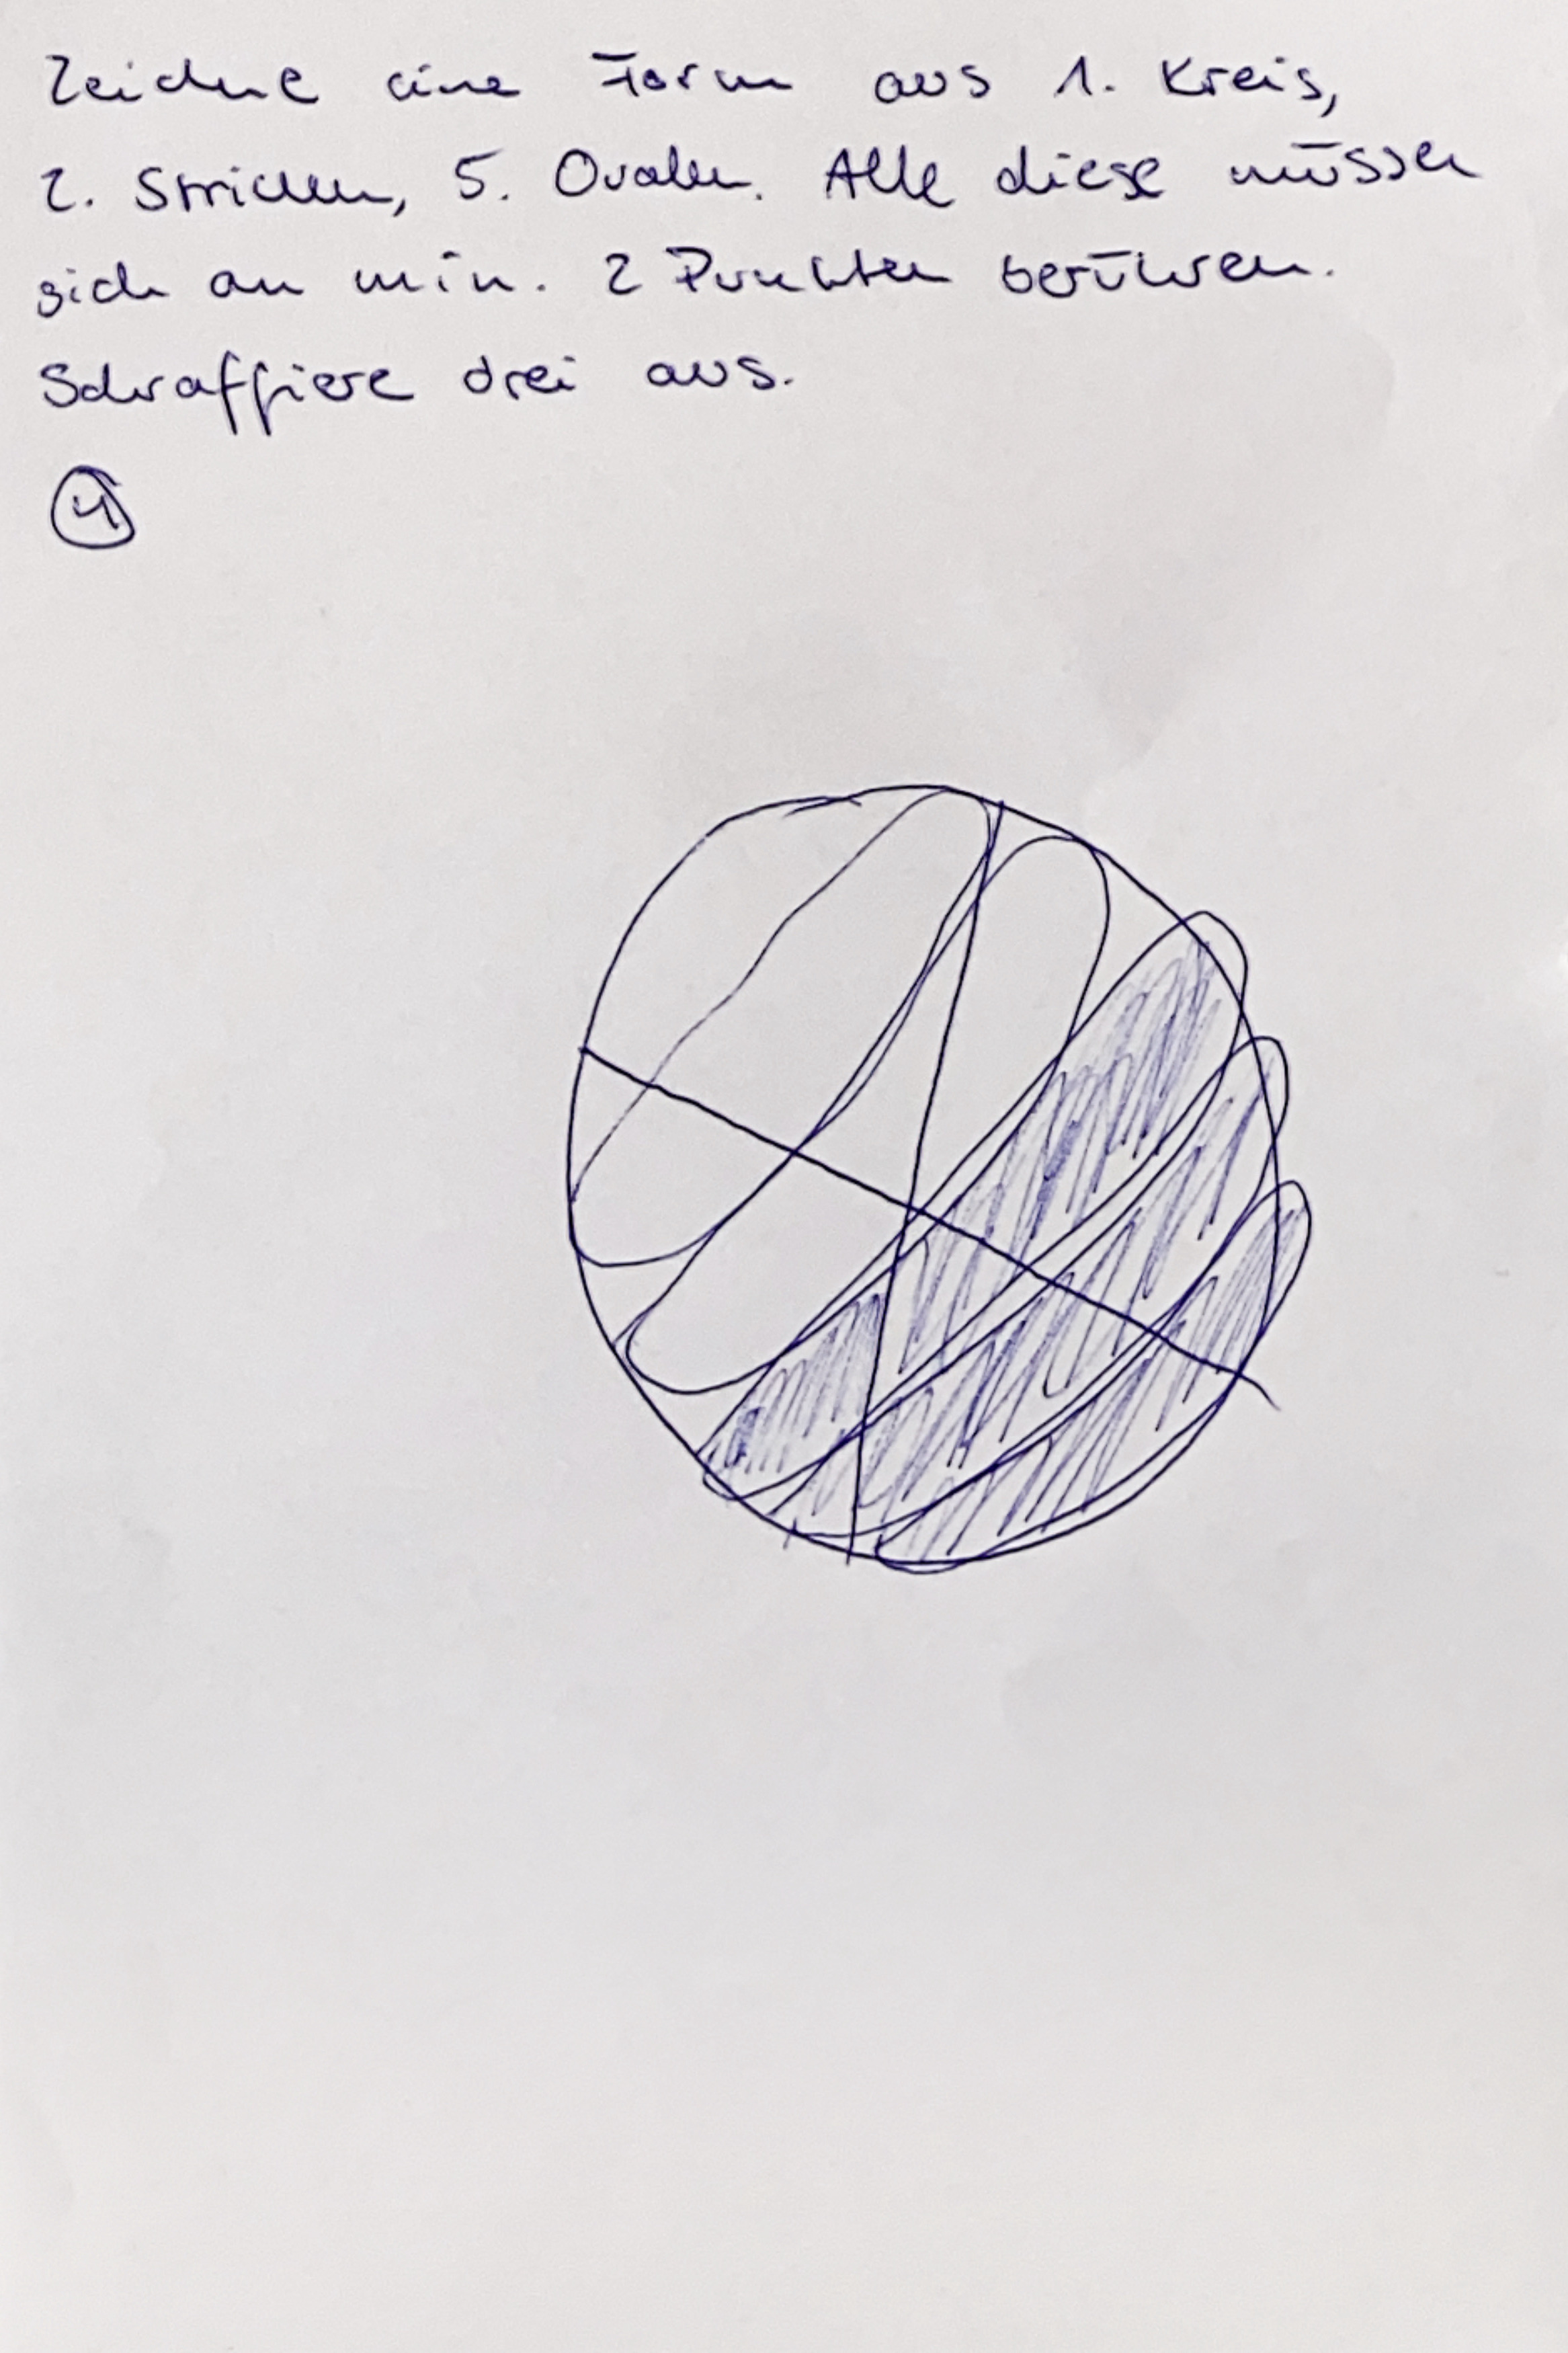 Zeichne eine Form aus 1. Kreis,
2. Strichen, 5. Ovalen. Alle diese müssen
sich an min. 2 Punkten berühren.
Schraffiere drei aus.
4